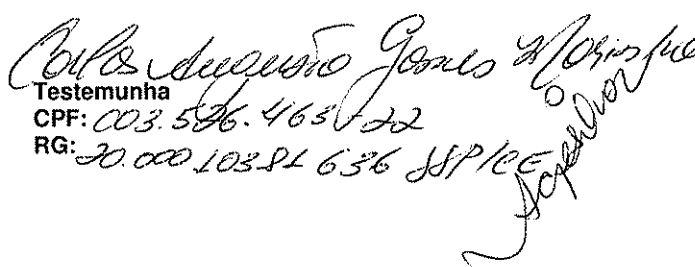 Carlos Augusto Gomes
Testemunha
CPF: 003.526.463-22
RG: 20.000 10381 636 SSP/CE